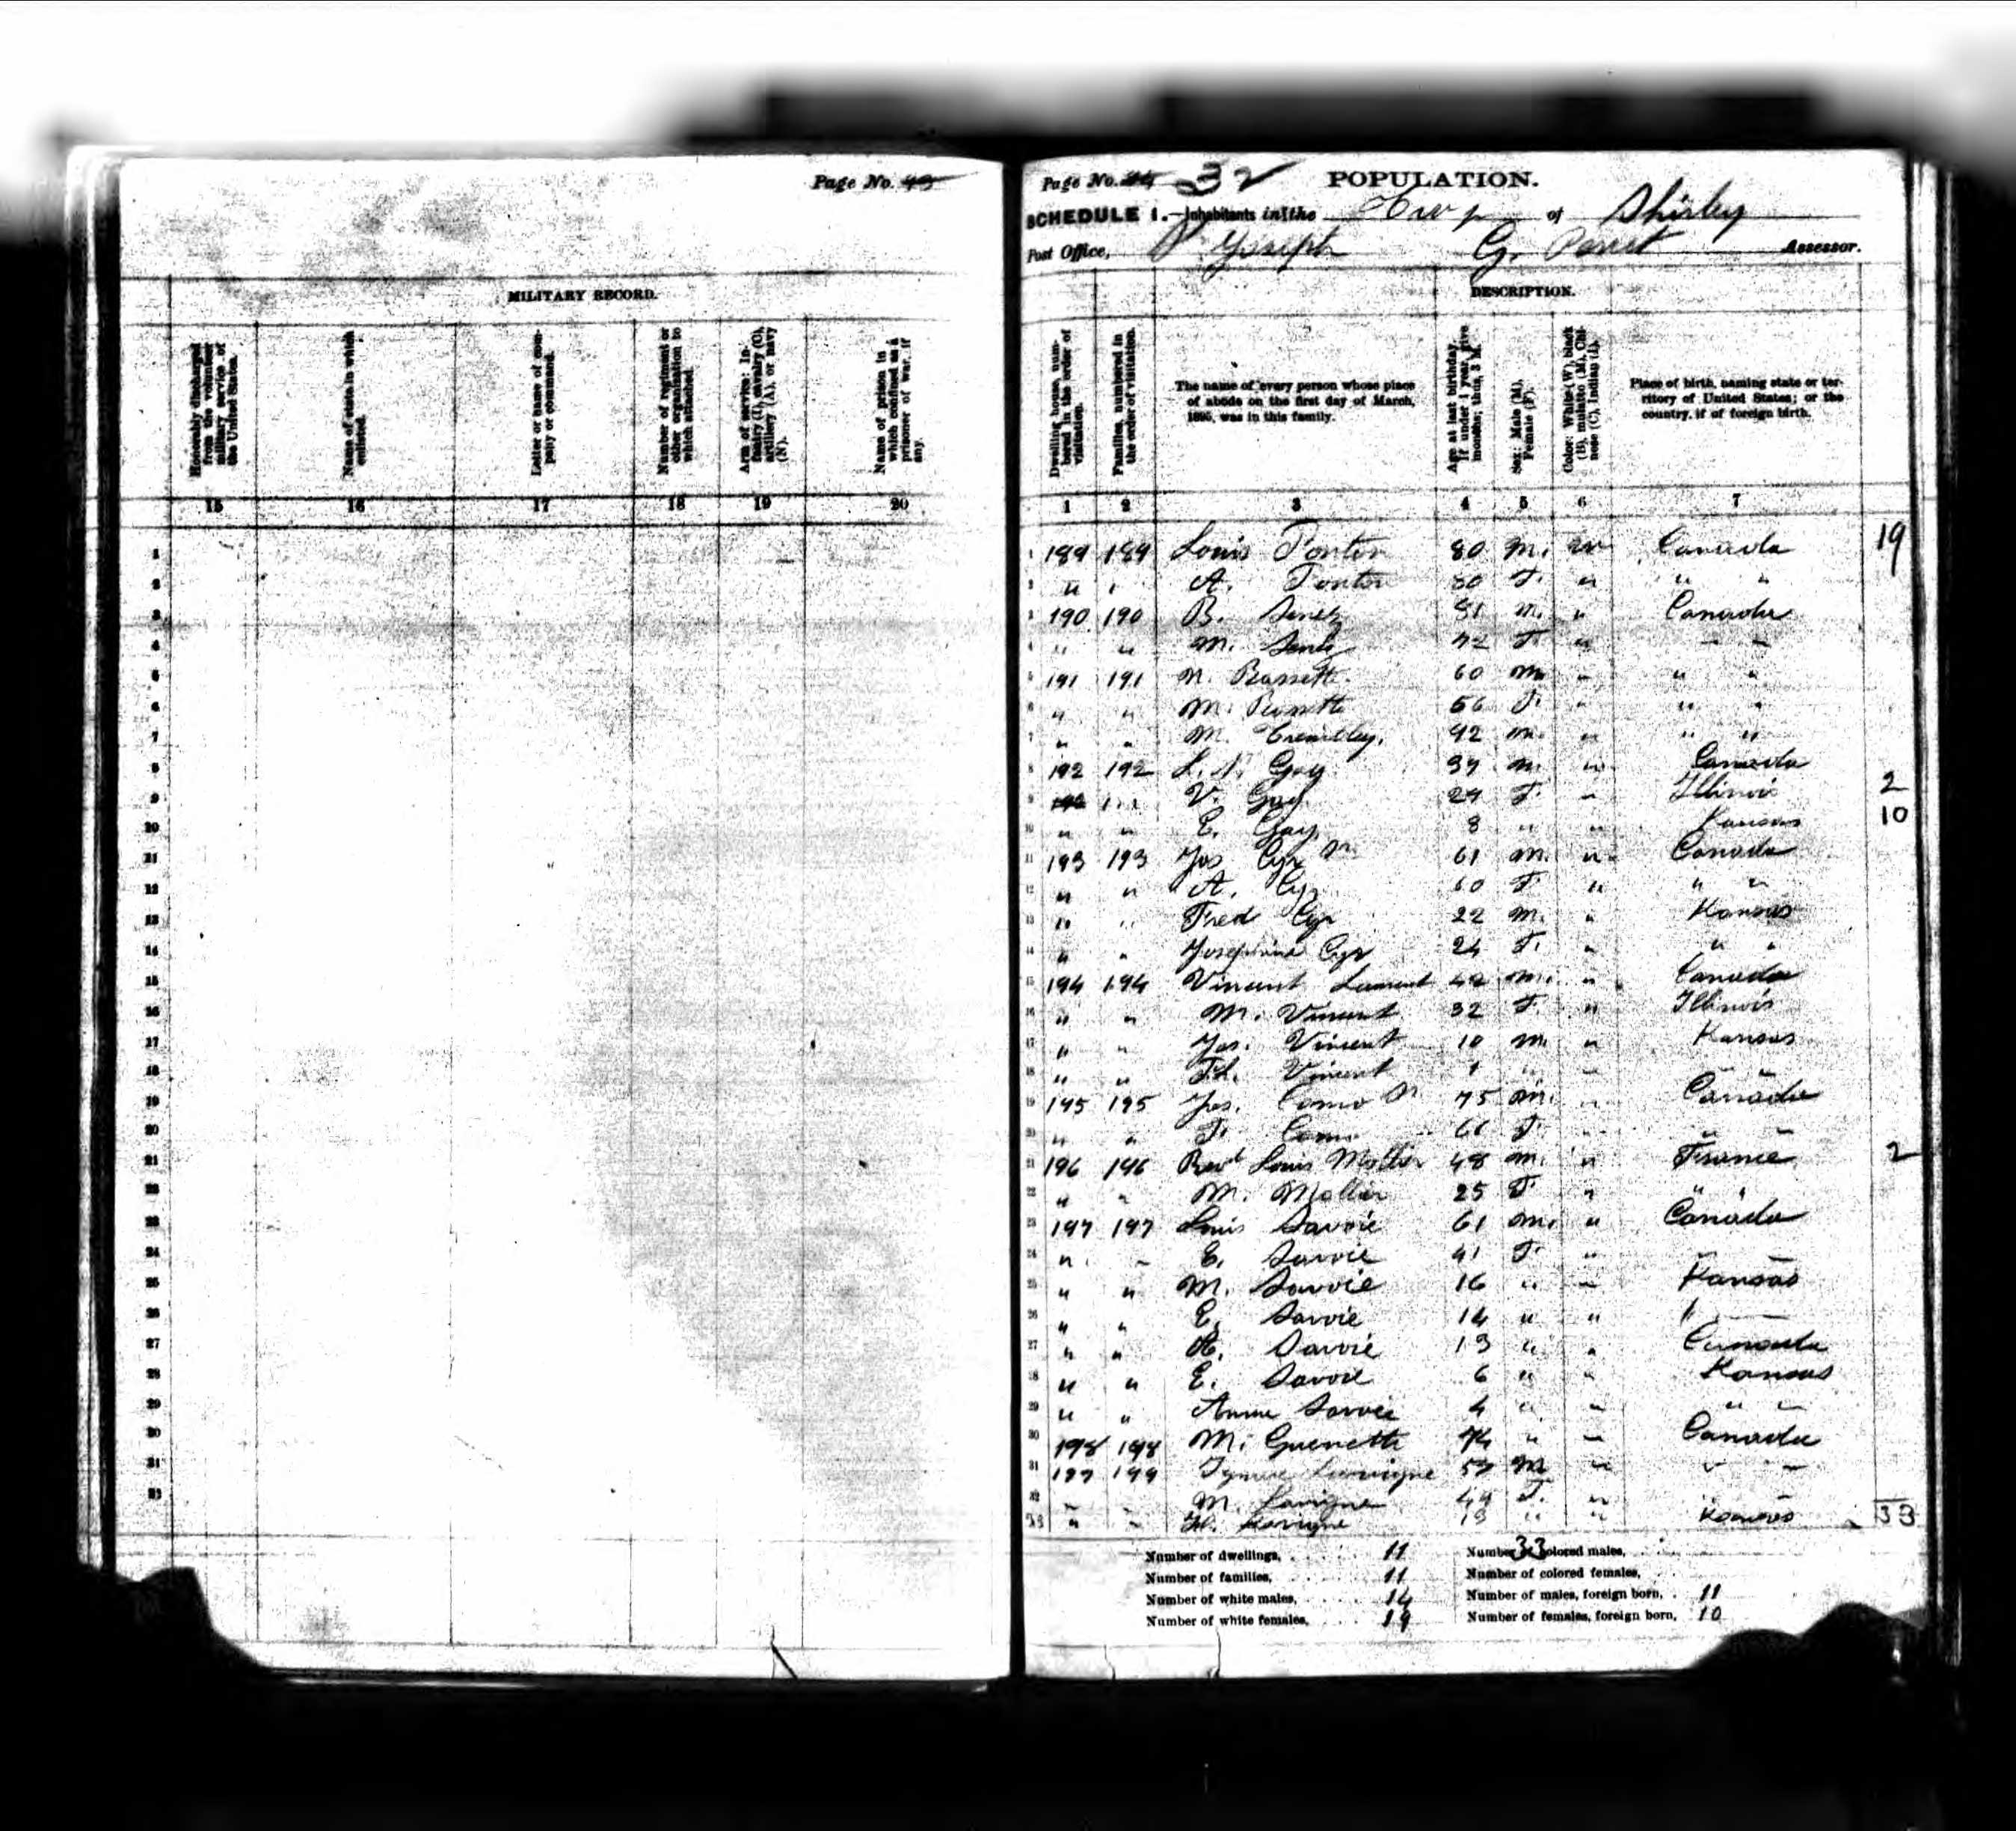 Page No. 43
MILITARY RECORD.
Honorably discharged from the volunteer military service of the United States.
Name of state in which enlisted.
Letter or name of company or command.
Number of regiment or other organization to which attached.
Arm of service: Infantry (I), cavalry (C), artillery (A), or navy (N).
Name of prison in which confined as a prisoner of war, if any.
15 16 17 18 19 20
1
2
3
4
5
6
7
8
9
10
11
12
13
14
15
16
17
18
19
20
21
22
23
24
25
26
27
28
29
30
31
Page No. 44 32 POPULATION.
SCHEDULE 1.—Inhabitants in the Twp of Shirley
Post Office, St Joseph G. Perret Assessor.
DESCRIPTION.
Dwelling house, numbered in the order of visitation.
Families, numbered in the order of visitation.
The name of every person whose place of abode on the first day of March, 1895, was in this family.
Age at last birthday. If under 1 year, give months; thus, 3 M.
Sex: Male (M), Female (F).
Color: White (W), black (B), mulatto (M), Chinese (C), Indian (I).
Place of birth, naming state or territory of United States; or the country, if of foreign birth.
1 2 3 4 5 6 7
1 189 189 Louis Ponton 80 M. W Canada 19
2 " " A. Ponton 80 F. " " "
3 190 190 B. Senez 81 M. " Canada
4 " " M. Senez 72 F. " " "
5 191 191 N. 60 M " " "
6 " " M. 56 F. " " "
7 " " M. Trembley. 42 M. " " "
8 192 192 L. N. Gay 37 M. " Canada
9 V. Gay 29 F. " Illinois 2
10 " " E. Gay 8 " " Kansas 10
11 193 193 Jos Cyr Sr 61 M. " Canada
12 " " A. Cyr 60 F. " " "
13 " " Fred Cyr 22 M. " Kansas
14 " " Josephine Cyr 24 F. " " "
15 194 194 Vincent 42 M. " Canada
16 " " M. Vincent 32 F. " Illinois
17 " " Jos. Vincent 10 M. " Kansas
18 " " Vincent " "
19 195 195 Jos. Como Sr 75 M. " Canada
20 " " F. Como F. " " "
21 196 196 Revd Louis Mollier 48 M. " France 2
22 " " M. Mollier 25 F. " " "
23 197 197 Louis Savoie 61 M. " Canada
24 " " E. Savoie 41 F. " " "
25 " " M. Savoie 16 " " Kansas
26 " " E. Savoie 14 " " "
27 " " A. Savoie 13 " " Canada
28 " " E. Savoie 6 " " Kansas
29 " " Anna Savoie 4 " " " "
30 198 198 M. Guenette 74 " " Canada
31 199 199 Lavigne 57 M " " "
32 " " M. Lavigne 49 F. " "
33 " " Lavigne 13 " " Kansas 33
Number of dwellings, 11 Number of colored males, 33
Number of families, 11 Number of colored females,
Number of white males, 14 Number of males, foreign born, 11
Number of white females, 19 Number of females, foreign born, 10